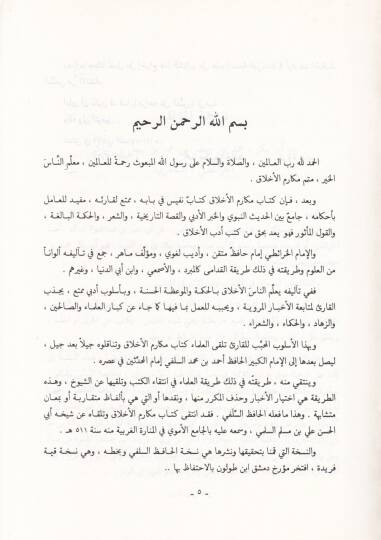 بسم الله الرحمن الرحيم
الحمد لله رب العالمين ، والصلاة والسلام على رسول الله المبعوث رحمةً للعالمين ، معلّم النّاسَ
الخير ، متمم مكارم الأخلاق .
وبعد ، فإن كتاب مكارم الأخلاق كتابٌ نفيس في بابه ، ممتع لقارئه ، مفيد للعامل
بأحكامه ، جامعٌ بين الحديث النبوي والخبر الأدبي والقصة التاريخية ، والشعر ، والحكمة البالغة ،
والقول المأثور فهو يعد بحق من كتب أدب الأخلاق .
والإمام الخرائطي إمام حافظٌ متقن ، وأديب لغوي ، ومؤلّف ماهر ، جمع في تآليفه ألواناً
من العلوم وطريقته في ذلك طريقة القدامى كالمبرد ، والأصمعي ، وابن أبي الدنيا ، وغيرهم .
ففي تآليفه يعلّم الناسَ الأخلاق بالحكمة والموعظة الحسنة ، وبأسلوب أدبي ممتع ، يجذب
القارئ لمتابعة الأخبار المروية ، ويحببه للعمل بما فيها كما جاء عن كبار العلماء والصالحين ،
والزهاد ، والحكماء ، والشعراء .
وبهذا الأسلوب المحبّب للقارئ تلقى العلماء كتاب مكارم الأخلاق وتناقلوه جيلاً بعد جيل ،
ليصل بعدها إلى الإمام الكبير الحافظ أحمد بن محمد السلفي إمام المحدّثين في عصره .
وينتقي منه ، طريقتُه في ذلك طريقة العلماء في انتقاء الكتب وتلقيها عن الشيوخ ، وهذه
الطريقة هي اختيار الأخبار وحذف المكرر منها ، ونقدها أو التي هي بألفاظ متقاربة أو بمعان
متشابهة . وهذا ما فعله الحافظ السِّلفي . فقد انتقى كتاب مكارم الأخلاق وتلقاه عن شيخه أبي
الحسن علي بن مسلم السلمي ، وسمعه عليه بالجامع الأموي في المنارة الغربية منه سنة ٥١١ هـ .
والنسخة التي قمنا بتحقيقها ونشرها هي نسخة الحافظ السلفي وبخطه ، وهي نسخة قيمة
فريدة ، افتخر مؤرخ دمشق ابن طولون بالاحتفاظ بها ..
- ٥ -